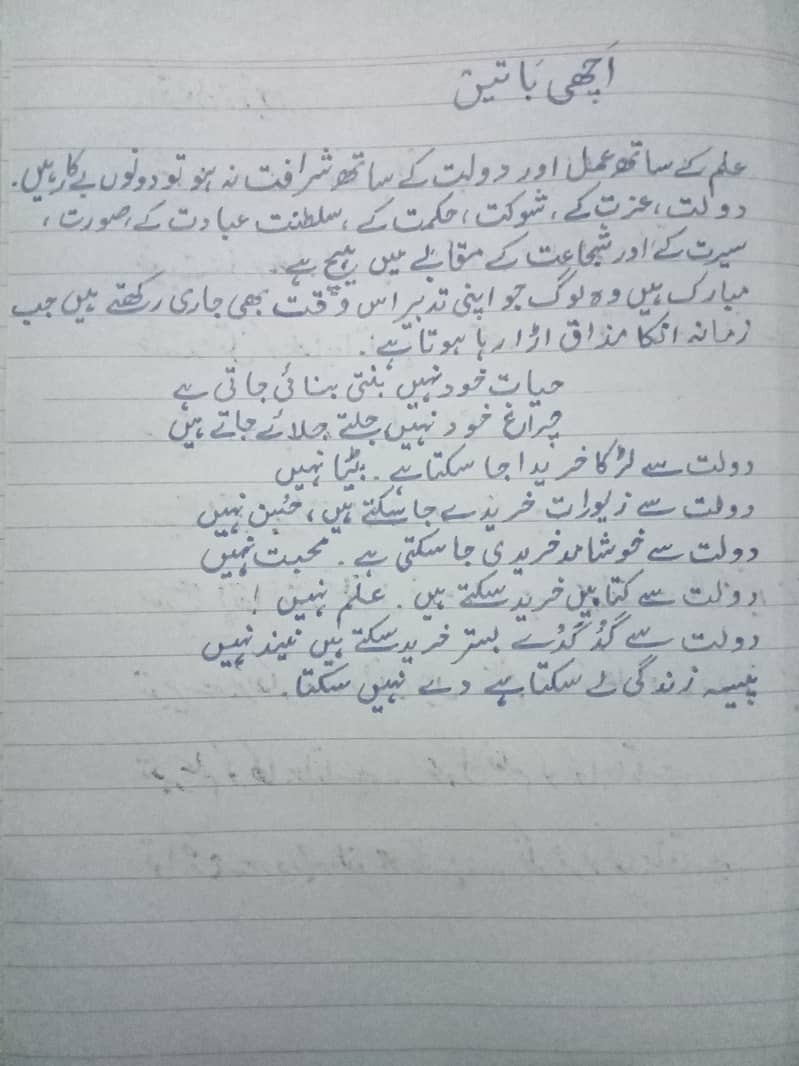 اَچھی بَاتیں
علم کے ساتھ عمل اور دولت کے ساتھ شرافت نہ ہو تو دونوں بے کار ہیں.
دولت، عزت کے، شوکت، حکمت کے، سلطنت عبادت کے، صورت،
سیرت کے اور شجاعت کے مقابلے میں ہیچ ہے.
مبارک ہیں وہ لوگ جو اپنی تدبر اس وقت بھی جاری رکھتے ہیں جب
زمانہ انکا مذاق اڑا رہا ہوتا ہے.
حیات خود نہیں بنتی بنائی جاتی ہے
چراغ خود نہیں جلتے جلائے جاتے ہیں
دولت سے لڑکا خریدا جا سکتا ہے. بیٹا نہیں
دولت سے زیورات خریدے جا سکتے ہیں، حُسن نہیں
دولت سے خوشامد خریدی جا سکتی ہے. محبت نہیں
دولت سے کتابیں خرید سکتے ہیں. علم نہیں !
دولت سے گدُ گدُے بستر خرید سکتے ہیں نیند نہیں
پیسہ زندگی لے سکتا ہے دے نہیں سکتا.